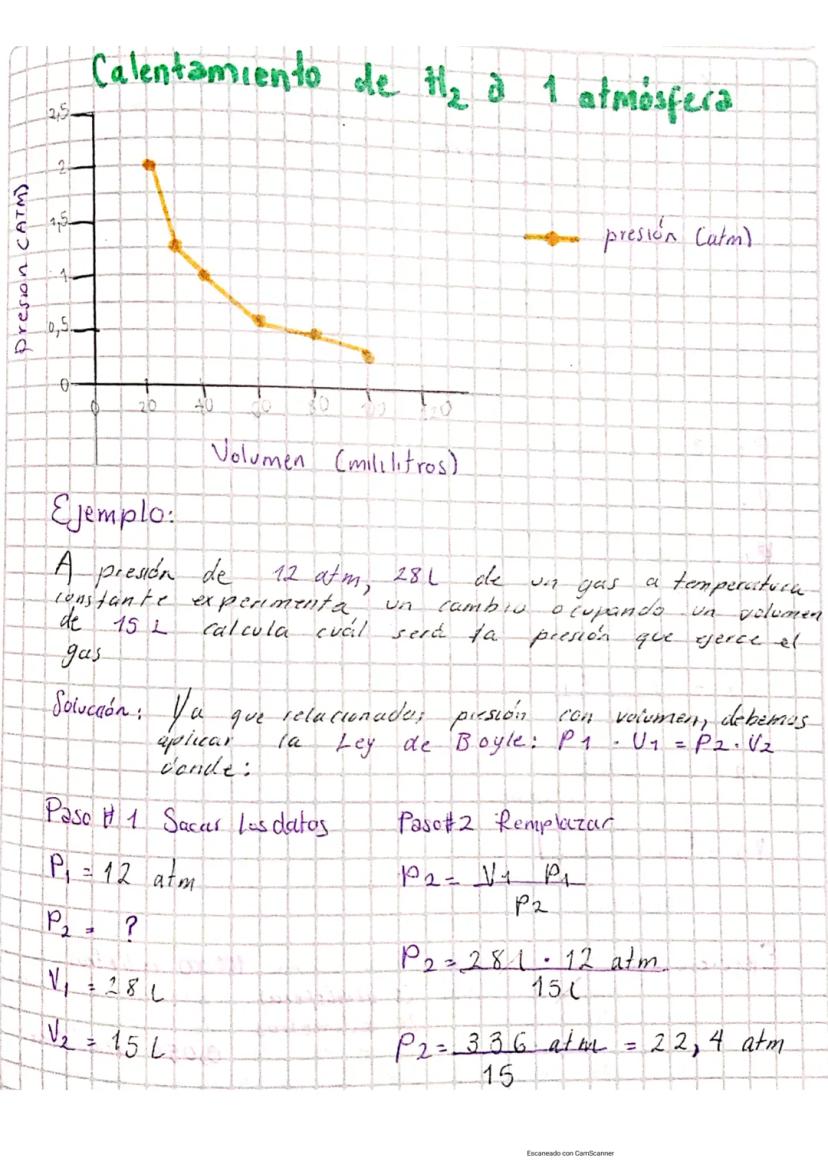 Calentamiento de H2 a 1 atmósfera
2,5
2
1,5
1
0,5
0
Presion (ATM)
presión (atm)
0 20 40 60 80 100 120
Volumen (mililitros)
Ejemplo:
A presión de 12 atm, 28L de un gas a temperatura
constante experimenta un cambio ocupando un volumen
de 15 L calcula cuál será la presión que ejerce el
gas
Solución: Ya que relacionados presión con volumen, debemos
aplicar la Ley de Boyle: P1 · V1 = P2 · V2
donde:
Paso # 1 Sacar los datos
P1 = 12 atm
P2 = ?
V1 = 28 L
V2 = 15 L
Paso#2 Remplazar
P2 = V1 P1
P2
P2 = 28 L · 12 atm
15 L
P2 = 336 atm = 22,4 atm
15
Escaneado con CamScanner